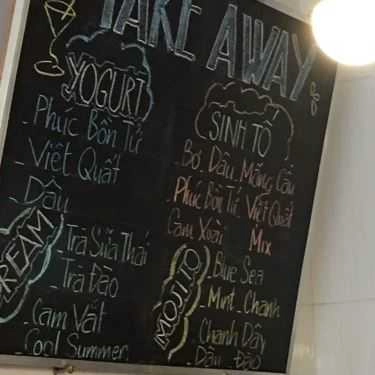 TAKE AWAY
YOGURT
Phúc Bồn Tử
Việt Quất
Dâu
CREAM
Trà Sữa Thái
Trà Đào
Cam Vắt
Cool Summer
SINH TỐ
Bơ Dâu Mãng Cầu
Phúc Bồn Tử Việt Quất
Cam Xoài Mix
MOJITO
Blue Sea
Mint Chanh
Chanh Dây
Dâu Đào